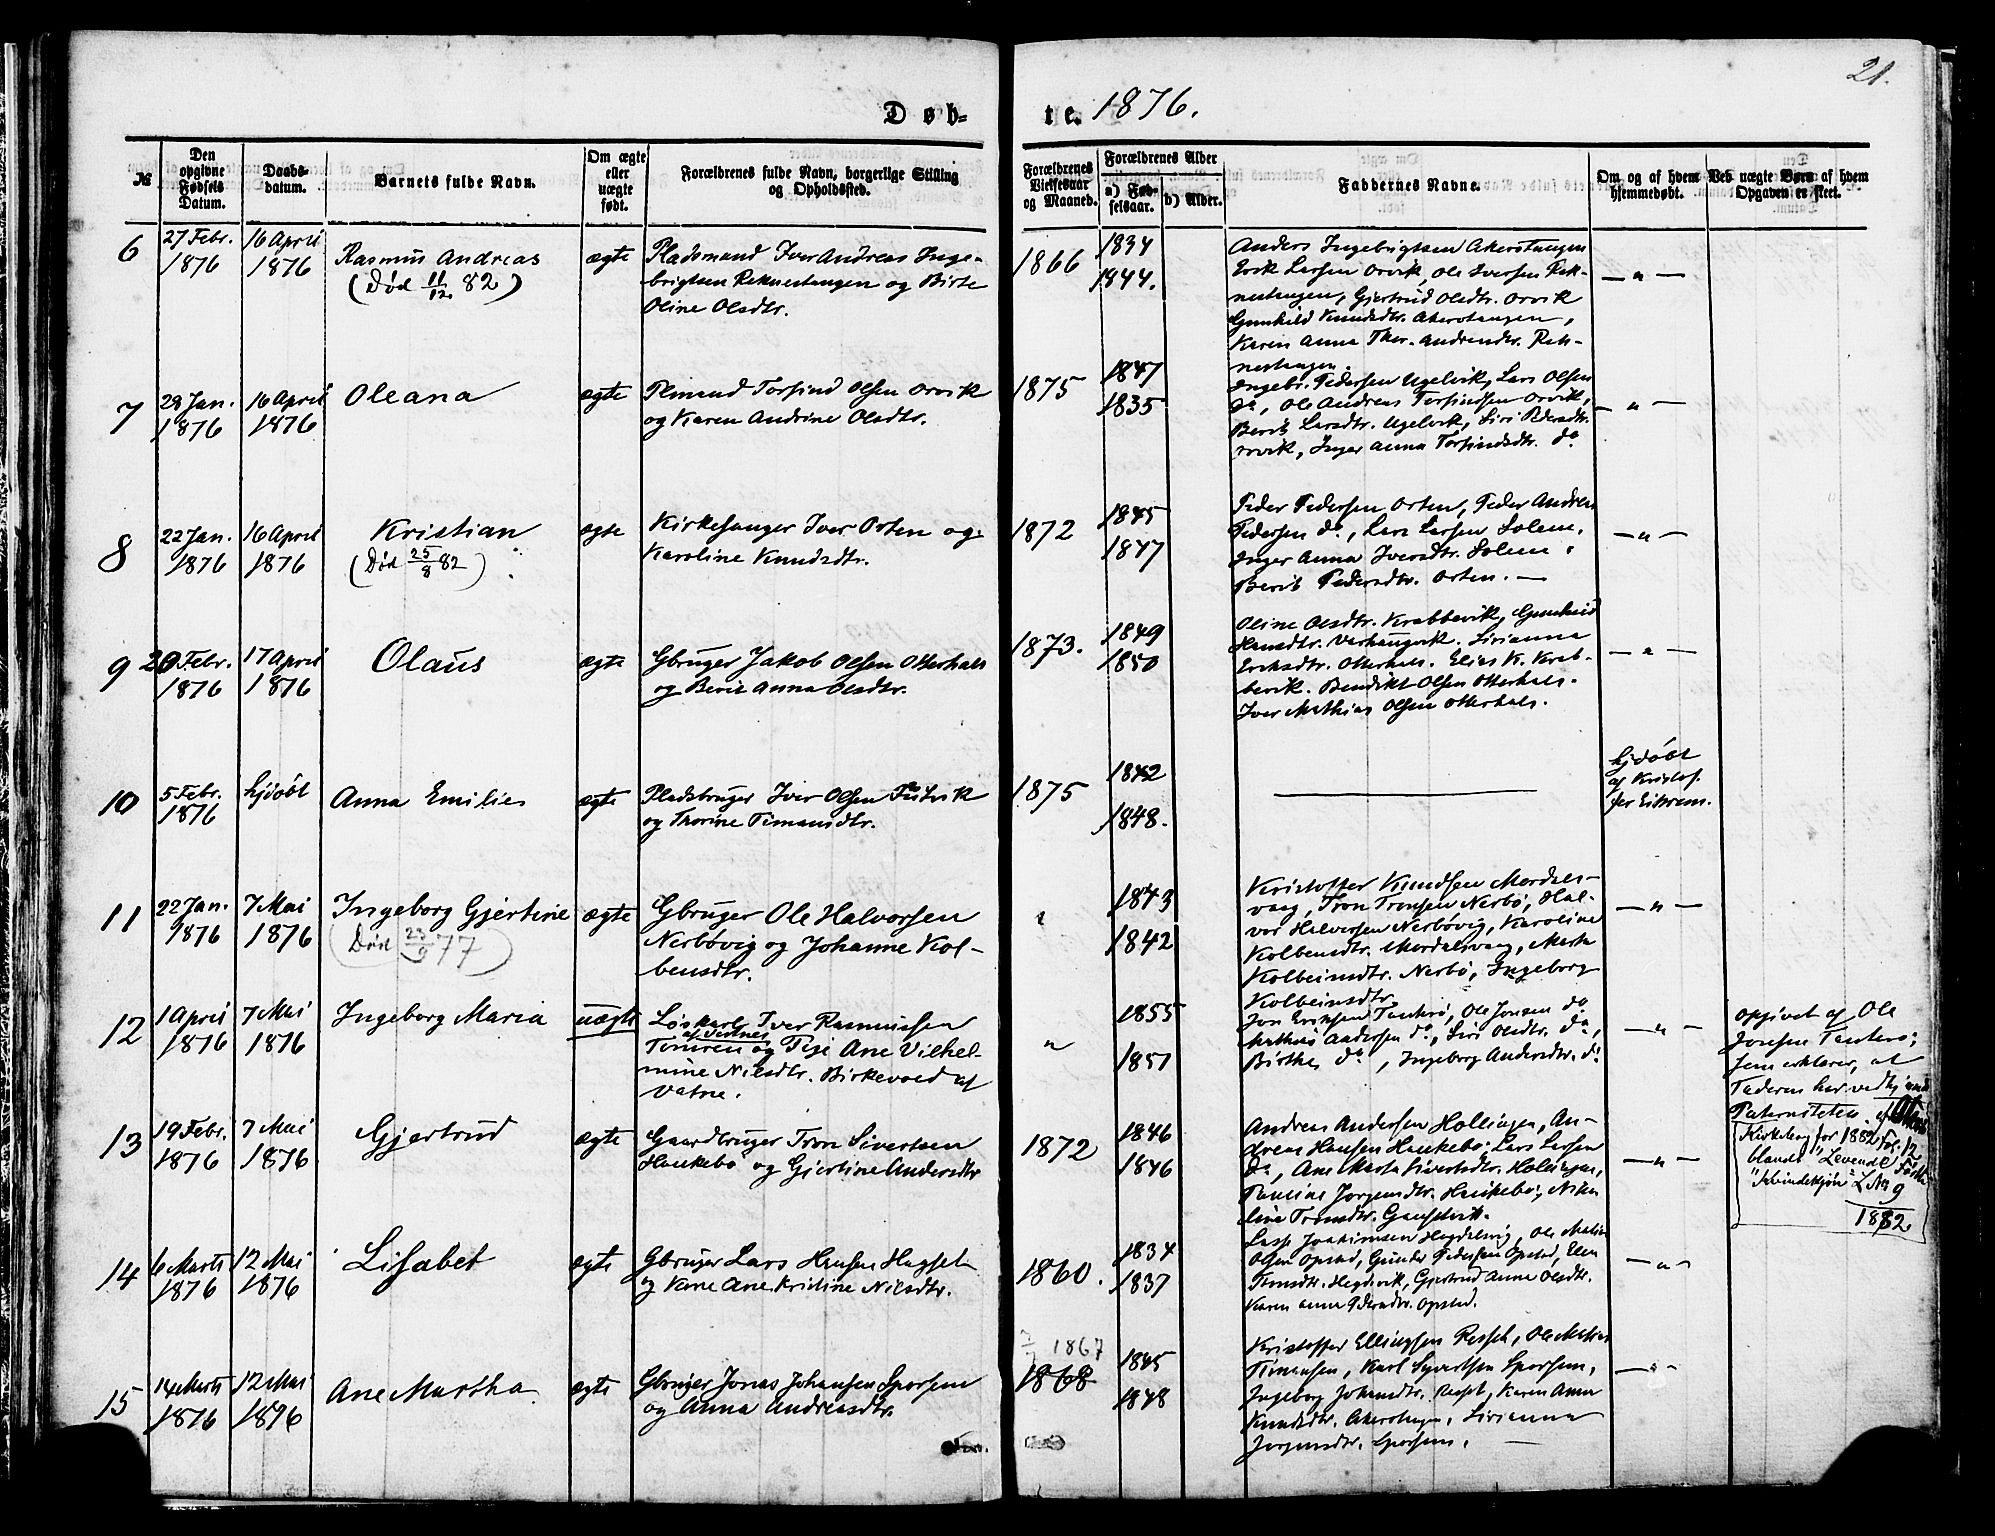 21.
Døb-
te. 1876.
№
Den opgivne Fødsels Datum.
Daabs- datum.
Barnets fulde Navn.
Om ægte eller uægte født.
Forældrenes fulde Navn, borgerlige Stilling og Opholdssted.
Forældrenes Vielsesaar og Maaned.
Forældrenes Alder
a) Fød- selsaar.
b) Alder.
Faddernes Navne.
Om og af hvem hjemmedøbt.
Ved uægte Børn af hvem Opgaven er skeet.
6
27 Febr.
1876
16 April
1876
Rasmus Andreas
(Død 11/12 82)
ægte
Pladsmand Iver Andreas Inge-
brigtsen Reknestangen og Birte
Oline Olsdtr.
1866
1834
1844.
Anders Ingebrigtsen Akerstangen
Erik Larsen Orvik, Ole Iversen Rek-
nestangen, Gjertrud Olsdtr. Orvik
Gunhild Knudsdtr. Akerstangen,
Karen Anna Thor. Andreasdtr. Rek-
nestangen.
— " —
7
28 Jan.
1876
16 April
1876
Oleana
ægte
Plmand Torfind Olsen Orvik
og Karen Andrine Olsdtr.
1875
1847
1835
Ingebr. Pedersen Ugelvik, Lars Olsen
do, Ole Andreas Torfindsen Orvik,
Berit Larsdtr. Ugelvik, Siri Pedersdtr.
Orvik, Inger Anna Torfindsdtr. do
— " —
8
22 Jan.
1876
16 April
1876
Kristian
(Død 25/8 82)
ægte
Kirkesanger Iver Orten og
Karoline Knudsdtr.
1872
1845
1847
Peder Pedersen Orten, Peder Andreas
Pedersen do, Lars Larsen Solem,
Inger Anna Iversdtr. Solem,
Berit Pedersdtr. Orten. —
— " —
9
20 Febr.
1876
17 April
1876
Olaus
ægte
Gbruger Jakob Olsen Otterhals
og Berit Anna Olsdtr.
1873.
1849
1850
Oline Olsdtr. Krabbevik, Gunhild
Hansdtr. Varhaugvik. Sirianna
Eriksdtr. Otterhals. Elias K. Krab-
bevik. Bendikt Olsen Otterhals.
Iver Mathias Olsen Otterhals.
— " —
10
5 Febr.
1876
hjdøbt
Anna Emilie
ægte
Pladsbruger Iver Olsen
og Thorine Timansdtr.
1875
1842
1848.
hjdøbt
af Kristof-
fer Eikrem.
11
22 Jan.
1876
7 Mai
1876
Ingeborg Gjertine
(Død 23/9 77)
ægte
Gbruger Ole Halvorsen
Nerbøvig og Johanne Kol-
bensdtr.
1843
1842
Kristoffer Knudsen Mordals-
vaag, Tron Tronsen Nerbø, Hal-
vor Halvorsen Nerbøvig, Karoline
Kolbensdtr. Mordalsvaag, Marta
Kolbeinsdtr. Nerbø, Ingeborg
Kolbeinsdtr.
— " —
12
1 April
1876
7 Mai
1876
Ingeborg Maria
uægte
Løskarl Iver Rasmussen
og Pige Ane Vilhel-
mine Nilsdtr. Birkevold af
Vatne.
"
1855
1851
Jon Eriksen Tautrø, Ole Jonsen do
Mathias Andersen do, Siri Olsdtr. do,
Birthe do, Ingeborg Andersdtr. do
— " —
opgivet af Ole
Jonsen Tautrø;
som erklærer, at
Faderen har vedkj
Paterniteten
Kirkebog for 1882 Fol. 12
blandt "Levende Fødte
"Kvindekjøn" L No 9
1882
13
19 Febr.
1876
7 Mai
1876
Gjertrud
ægte
Gaardbruger Tron Sivertsen
Haukebø og Gjertine Andersdtr
1872
1846
1846
Andreas Andersen Hollingen, An-
dreas Hansen Haukebø, Lars Larsen
do, Ane Marta Sivertsdtr. Hollingen,
Pauline Jørgensdtr. Haukebø, Niko
line Tronsdtr.
— " —
14
6 Marts
1876
12 Mai
1876
Lisabet
ægte
Gbruger Lars Hansen Hagset
og Kone Ane Kristine Nilsdtr.
1860.
1834
1837
Lasse Joakimsen, Ole Matias
Olsen Opstad, Gunder Pedersen Opstad, Elen
Tronsdtr., Gjertrud Anne Olsdtr.
Karen Anne Pedersdtr. Opstad.
— " —
15
14 Marts
1876
12 Mai
1876
Ane Martha
ægte
Gbruger Jonas Johansen Sporsem
og Anna Andreasdtr.
1867
1868
1845
1848
Kristoffer Ellingsen Respet, Ole Matias
Timansen, Karl Syvertsen Sporsem,
Ingeborg Johansdtr. Respet, Karen Anne
Knudsdtr. Akerstangen, Sirianna
Jørgensdtr. Sporsem. —
— " —